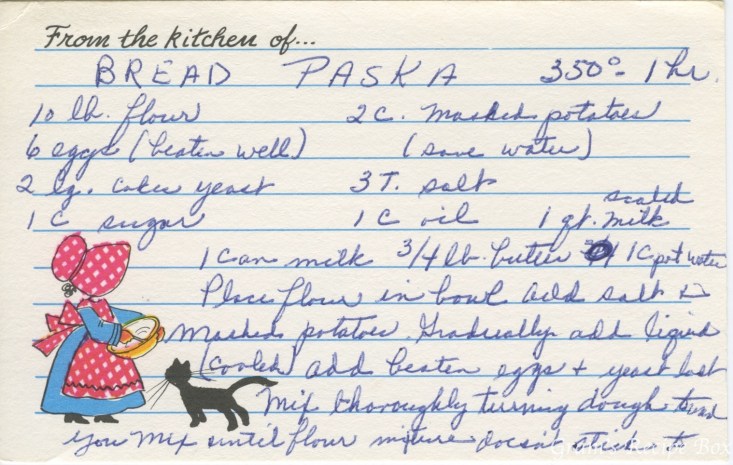 From the kitchen of...
BREAD PASKA 350° - 1 hr.
10 lb. flour 2 C. mashed potatoes
6 eggs (beaten well) (save water)
2 lg. cakes yeast 3 T. salt
1 C sugar 1 C oil 1 qt. scaled milk
1 can milk 3/4 lb. butter 1 C pot water
Place flour in bowl add salt &
mashed potatoes. Gradually add liquid
(cooled) add beaten eggs + yeast last
Mix thoroughly turning dough
you mix until flour mixture doesn't stick to
Recipe Box